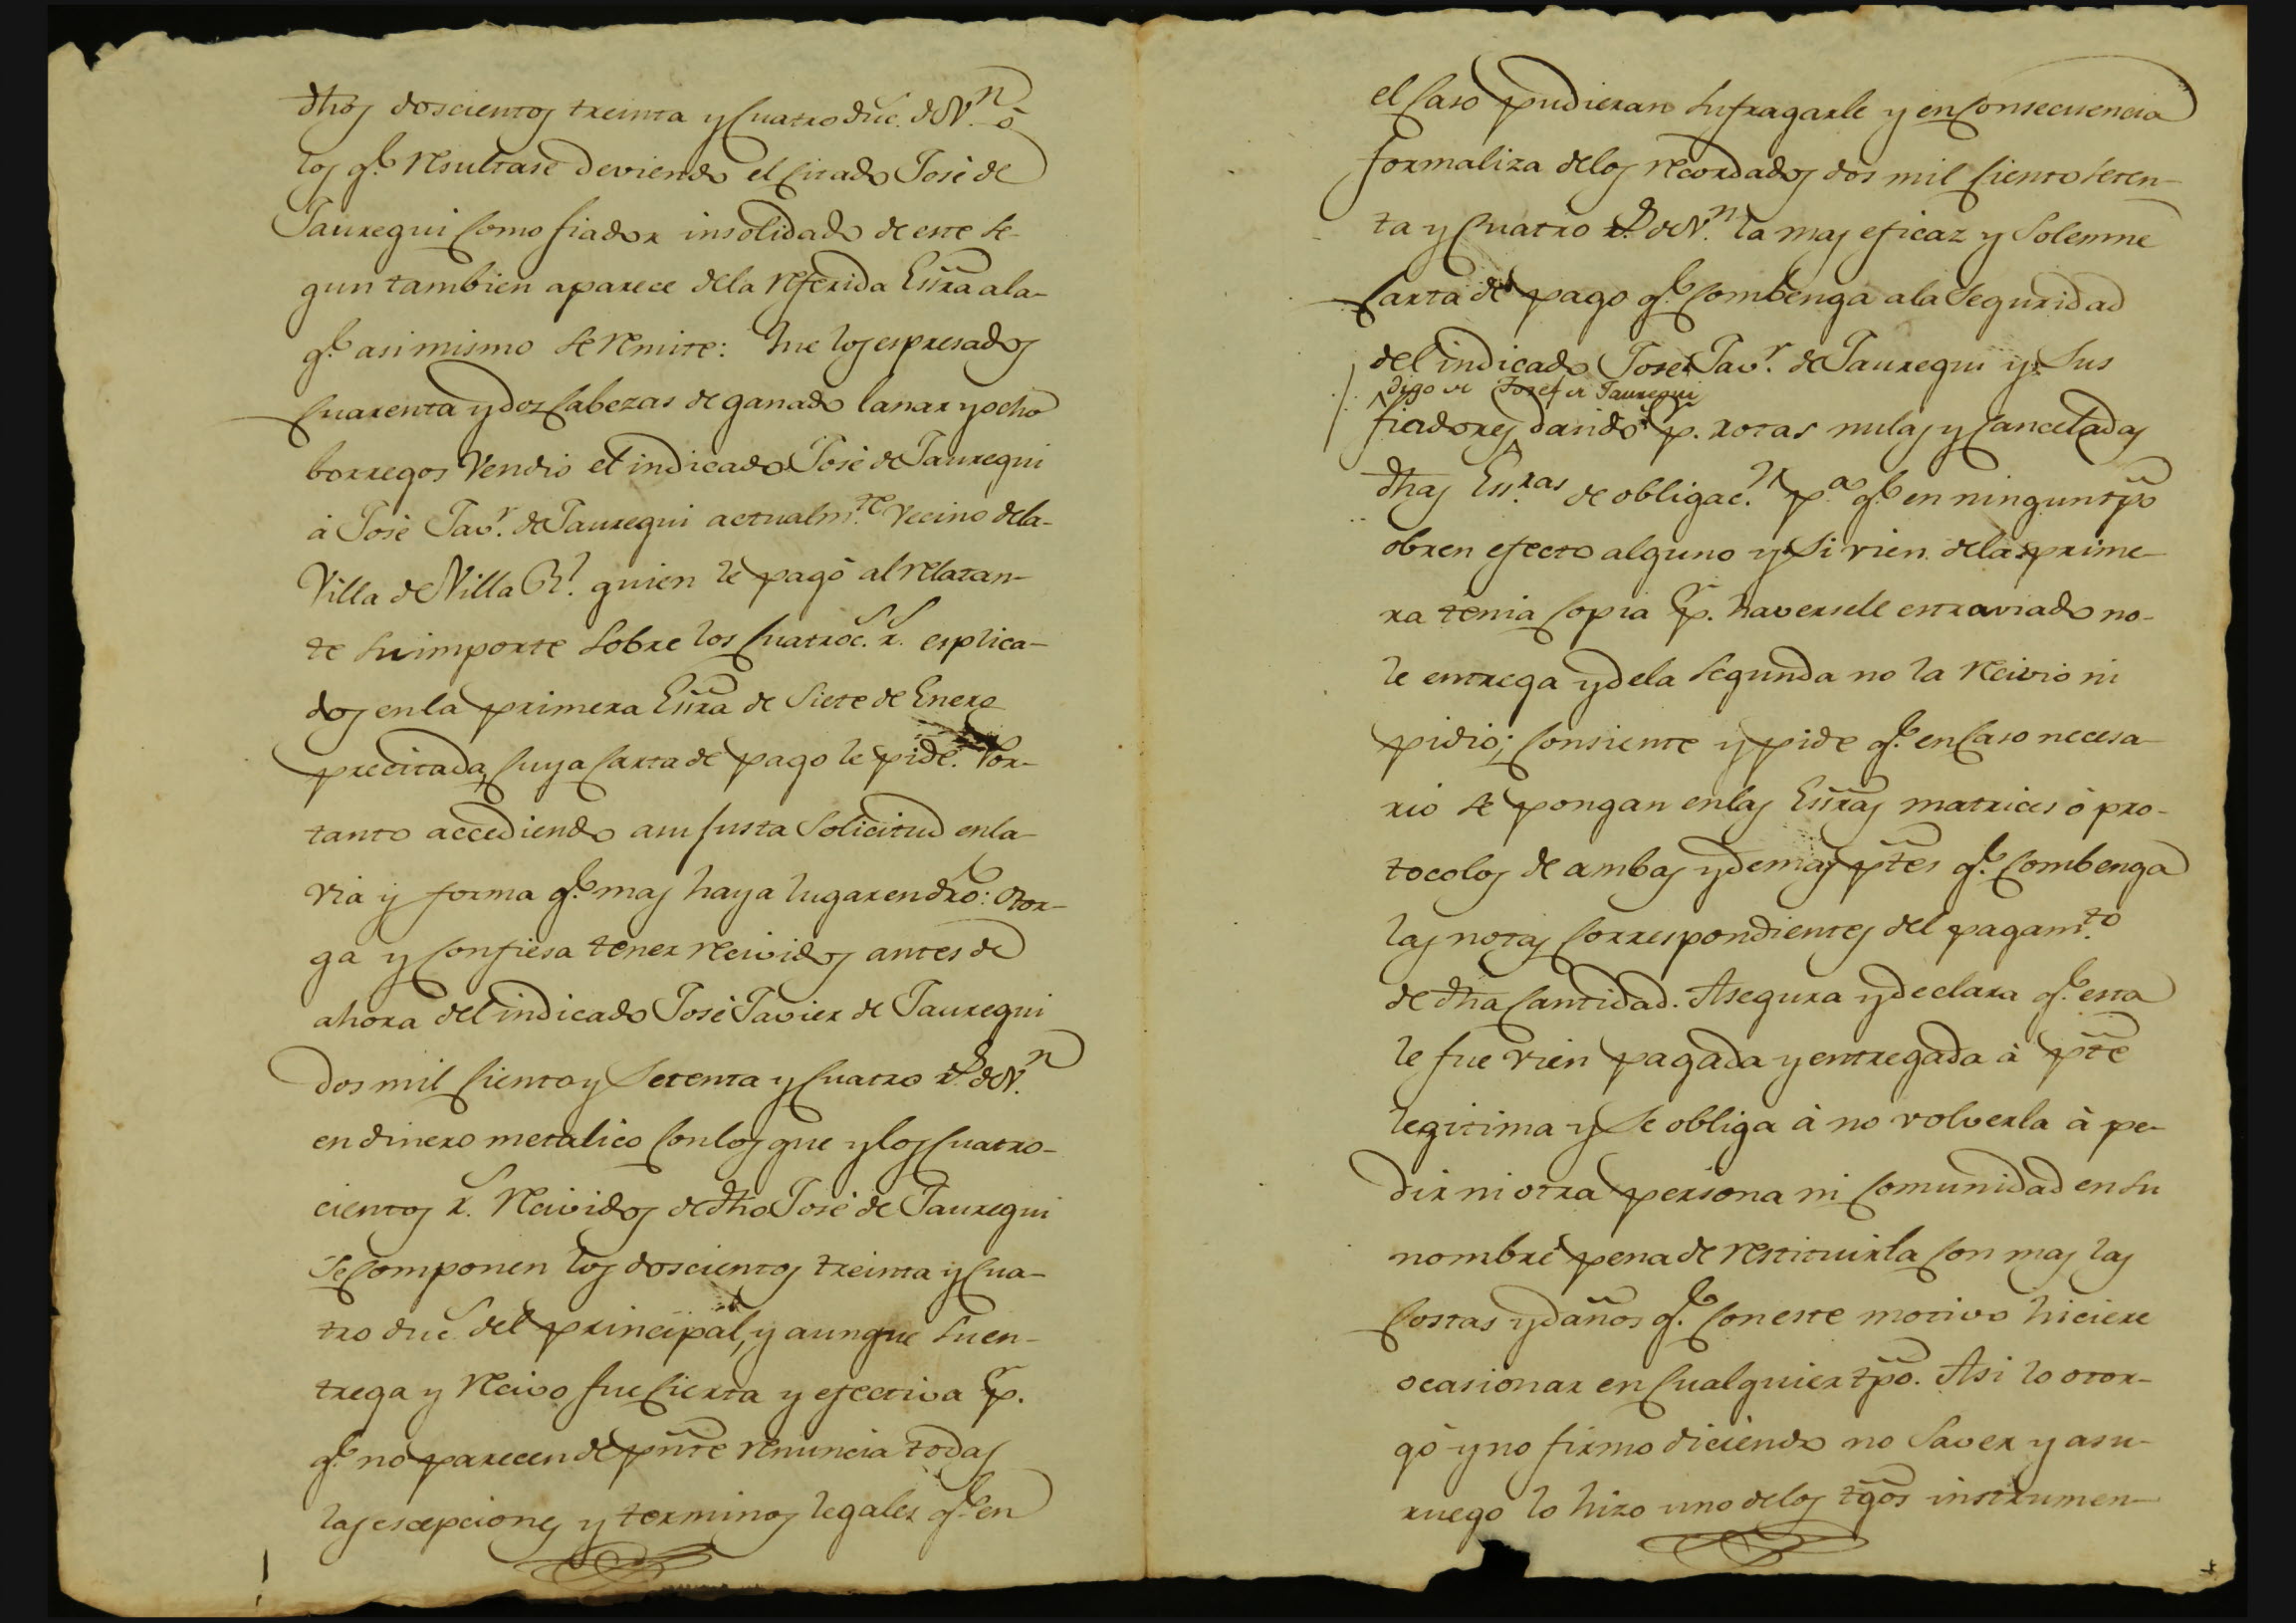 dhos doscientos treinta y Cuatro duc.s de V.n ó
los q.e resultase deviendo el Citado José de
Jauregui Como fiador insolidado de este se-
gun tambien aparece de la referida Essra a la-
q.e asi mismo se remite: Que los espresados
Cuarenta y dos Cabezas de ganado lanar y ocho
borregos Vendio el indicado José de Jauregui
á José Jav.r de Jauregui actualm.te Vecino de la-
Villa de Villa R.l quien le pagó al relatan-
te su importe sobre los Cuatroc.s r.s esplica-
dos en la primera Essra de Siete de Enero
precitada, Cuya Carta de pago le pide. Por-
tanto accediendo a su justa Solicitud en la-
via y forma q.e mas haya lugar en dro: Otor-
ga y Confiesa tener recividos antes de
ahora del indicado José Javier de Jauregui
dos mil Ciento y Setenta y Cuatro r.s de V.n
en dinero metalico Con los que y los Cuatro-
cientos r.s recividos de dho José de Jauregui
se Componen los doscientos treinta y Cua-
tro duc.s del principal, y aunque su en-
trega y recivo fue Cierta y efectiva p.r
q.e no parecen de pnte renuncia todas
las escepciones y terminos legales q.e en
el Caso pudieran sufragarle y en Consecuencia
formaliza de los recordados dos mil Ciento seten-
ta y Cuatro r.s de V.n la mas eficaz y Solemne
Carta de pago q.e Combenga a la Seguridad
del indicado José Jav.r de Jauregui y Sus
digo de Josef de Jauregui
fiadores dando p.r rotas nulas y Canceladas
dhas Ess.ras de obligac.n p.a q.e en ningun tpo
obren efecto alguno y Si vien de la prime-
ra tenia Copia p.r haversele estraviado no-
le entrega y de la segunda no la recivio ni
pidio; Consiente y pide q.e en Caso necesa-
rio se pongan en las Essras matrices ó pro-
tocolos de ambas y demas ptes q.e Combenga
las notas Correspondientes del pagam.to
de dha Cantidad. Asegura y declara q.e esta
le fue vien pagada y entregada á pte
legitima y Se obliga á no volverla á pe-
dir ni otra persona ni Comunidad en su
nombre pena de restituirla Con mas las
Costas y daños q.e Con este motivo hiciere
ocasionar en Cualquier tpo. Asi lo otor-
gó y no firmo diciendo no Saver y a su-
ruego lo hizo uno de los tgos instrumen-